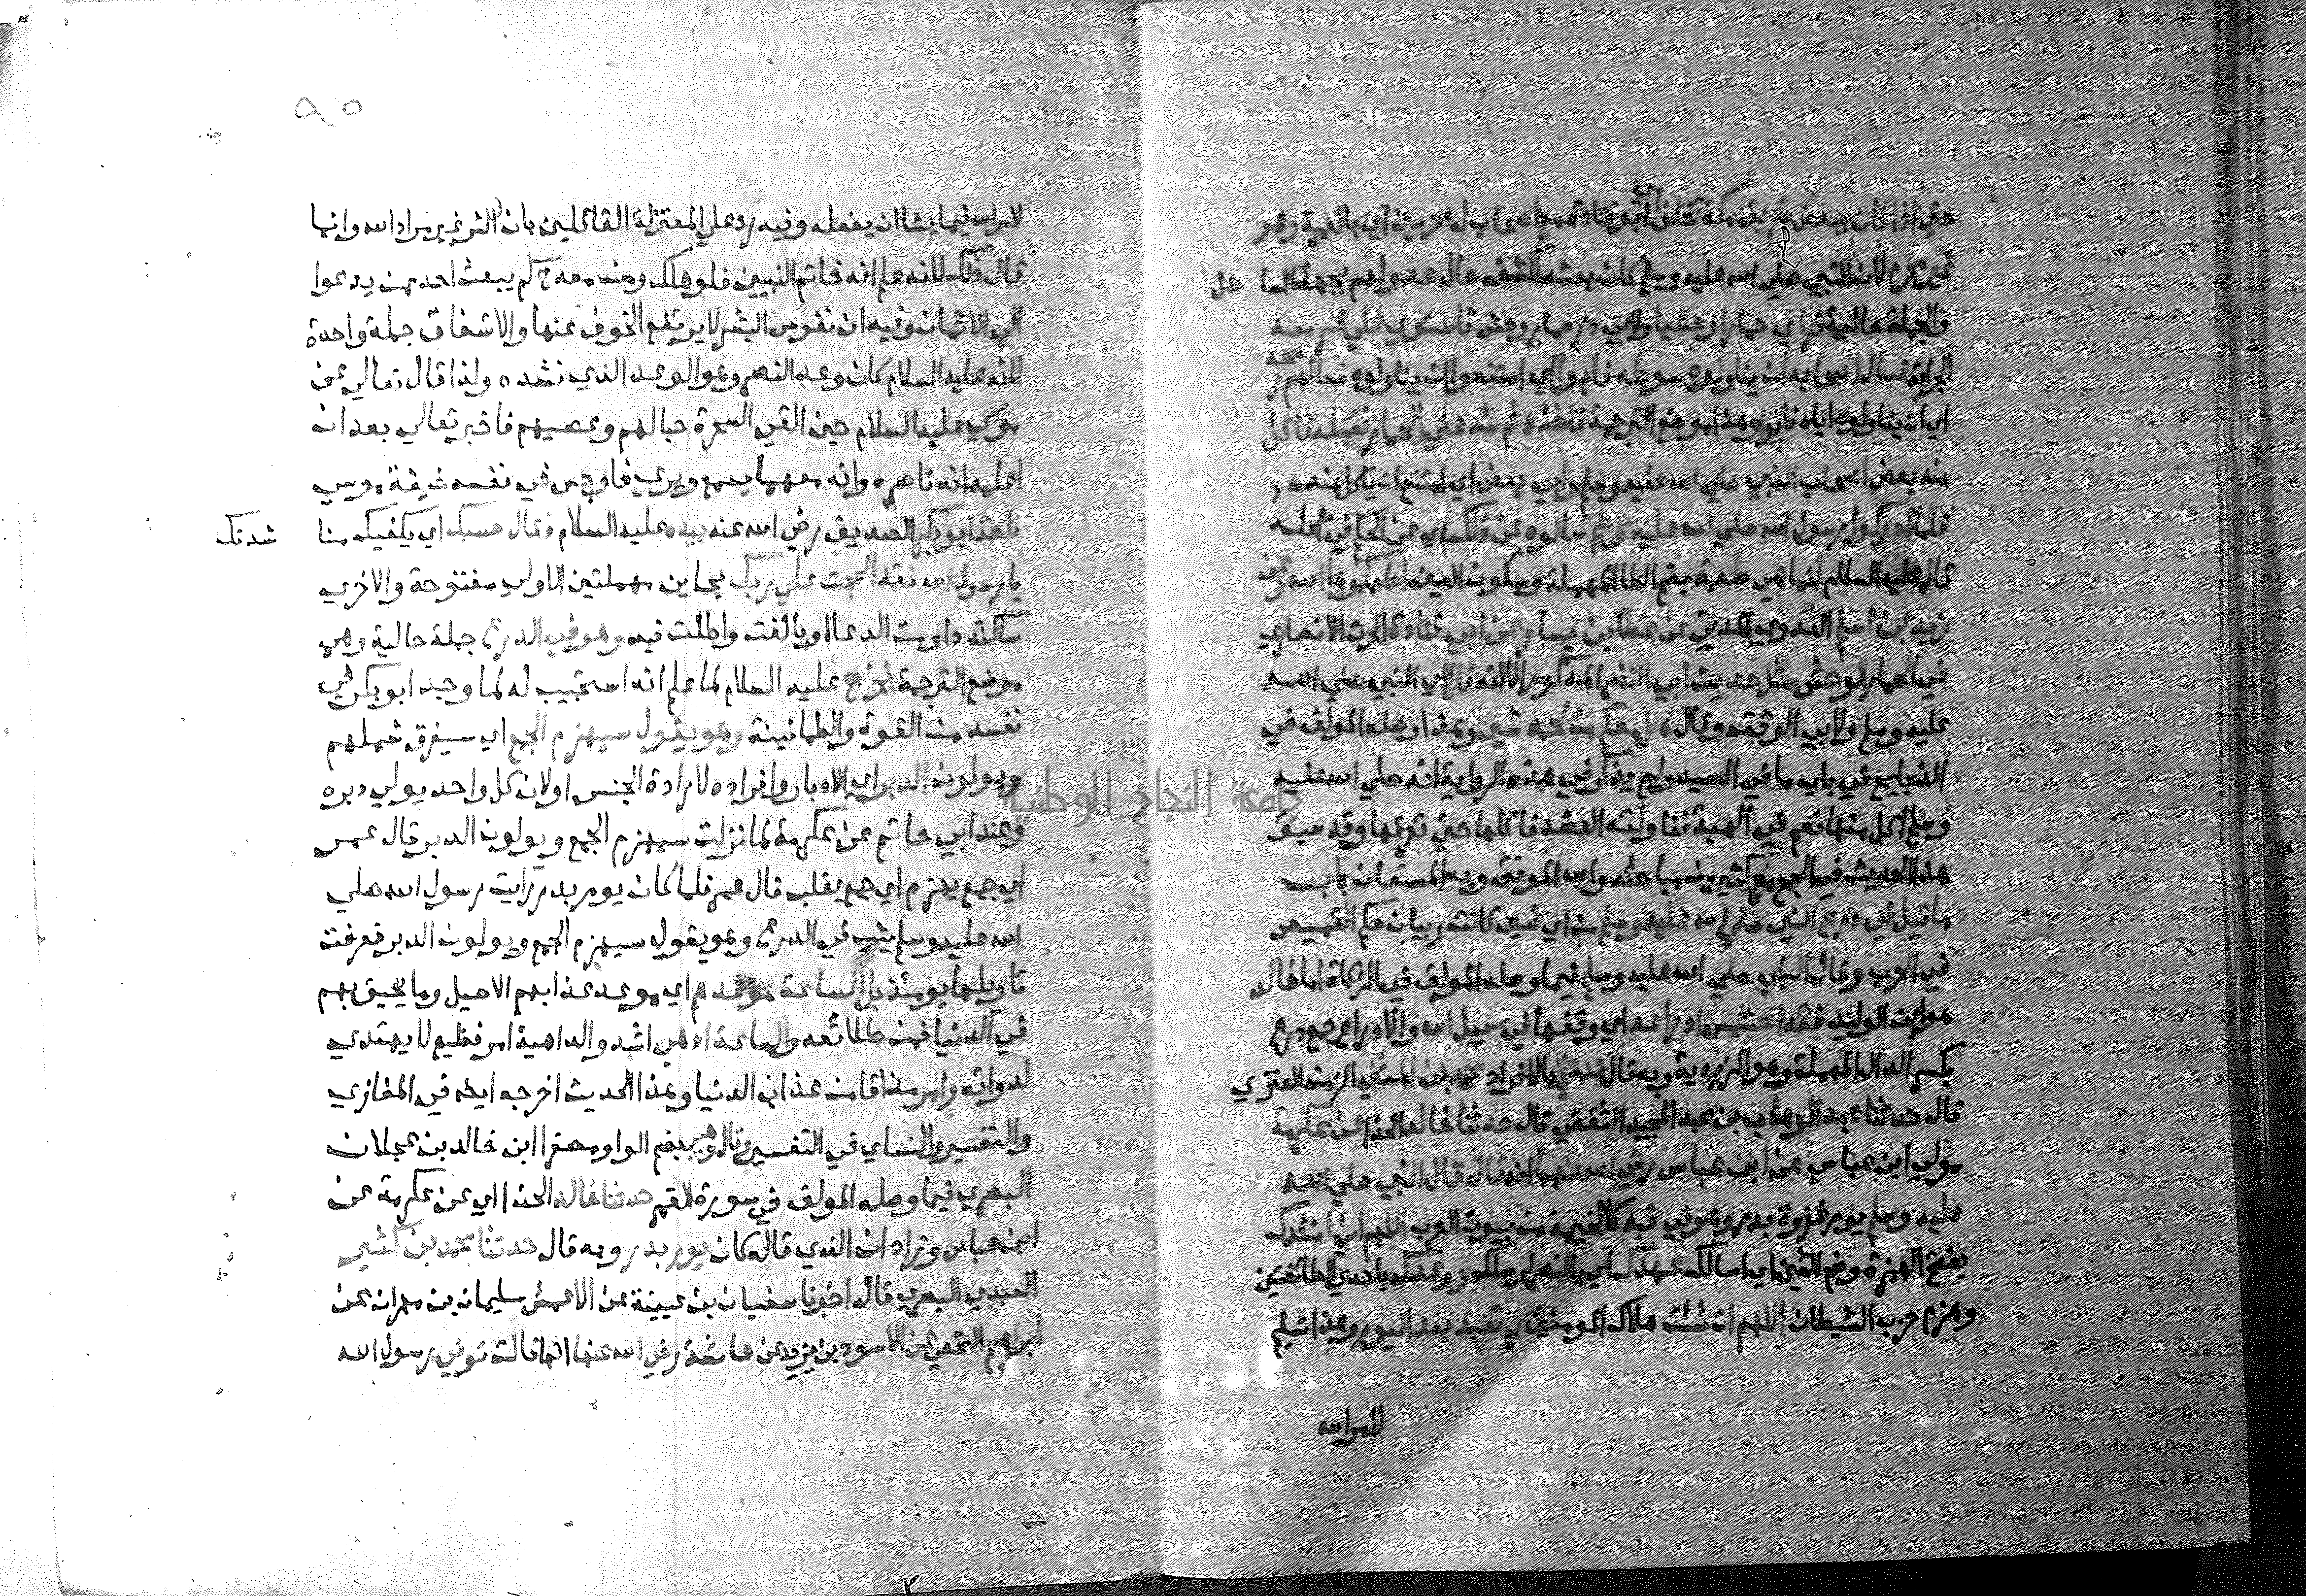 حتي اذا كان ببعض طريق مكة تخلف اي ابو قتادة مع اصحاب له محرمين اي بالعمرة وهو
غير محرم لان النبي صلي الله عليه وسلم كان بعثه لكشف حال عدو لهم بجهة الساحل
والجملة حالية فراي حمارا وحشيا ولابي ذر حمار وحش فاستوي علي فرسه
الجرادة فسال اصحابه ان يناولوه سوطه فابوا اي امتنعوا ان يناولوه فسالهم رمحه
اي ان يناولوه اياه فابوا وهذا موضع الترجمة فاخذه ثم شد علي الحمار فقتله فاكل
منه بعض اصحاب النبي صلي الله عليه وسلم وابي بعض اي امتنع ان ياكل منه
فلما ادركوا رسول الله صلي الله عليه وسلم سالوه عن ذلك اي عن الحكم في اكله
قال عليه السلام انما هي طعمة بضم الطا المهملة وسكون العين اطعمكموها الله وعن
زيد بن اسلم العدوي المدني عن عطا بن يسار عن ابي قتادة الحرث الانصاري
في الحمار الوحش مثل حديث ابي النضر المذكور الا انه قال اي النبي صلي الله
عليه وسلم ولابي الوقت وقال هل معكم من لحمه شي وهذا وصله المولف في
الذبايح في باب ما في الصيد ولم يذكر في هذه الرواية انه صلي الله عليه
وسلم اكل منها نعم في الهبة فناولته العضد فاكلها حتي تعرقها وقد سبق
هذا الحديث في الحج مع كثير من مباحثه والله الموفق وبه المستعان باب
ما قيل في درع النبي صلي الله عليه وسلم من اي شي كانت وبيان حكم القميص
في الحرب وقال النبي صلي الله عليه وسلم فيما وصله المولف في الزكاة اما خالد
هو ابن الوليد فقد احتبس ادراعه اي وقفها في سبيل الله والادراع جمع درع
بكسر الدال المهملة وهو الزردية وبه قال حدثني بالافراد محمد بن المثني الزمن العنزي
قال حدثنا عبد الوهاب بن عبد المجيد الثقفي قال حدثنا خالد الحذا عن عكرمة
مولي ابن عباس عن ابن عباس رضي الله عنهما انه قال قال النبي صلي الله
عليه وسلم يوم غزوة بدر وهو في قبة كالخيمة من بيوت العرب اللهم اني انشدك
بفتح الهمزة وضم الشين اي اسالك عهدك اي بالنصر لرسلك ووعدك باحدي الطائفتين
وهزم حزب الشيطان اللهم ان شئت هلاك المومنين لم تعبد بعد اليوم وهذا تسليم
لامر الله
٩٥
لامر الله فيما يشا ان يفعله وفيه رد علي المعتزلة القائلين بان الشر غير مراد الله وانما
قال ذلك لانه علم انه خاتم النبيين فلو هلك ومن معه ح لم يبعث احد ممن يدعوا
الي الايمان وفيه ان نفوس البشر لا يرتفع الخوف عنها والاشفاق جملة واحدة
لانه عليه السلام كان وعد النصر وهو الوعد الذي نشده ولذا قال تعالي عن
موسي عليه السلام حين القي السحرة حبالهم وعصيهم فاخبر تعالي بعد ان
اعلمه انه ناصره وانه معهما يسمع ويري فاوجس في نفسه خيفة موسي
فاخذ ابو بكر الصديق رضي الله عنه بيده عليه السلام وقال حسبك اي يكفيك مناشدتك
يا رسول الله فقد الححت علي ربك بحاين مهملتين الاولي مفتوحة والاخري
ساكنة داومت الدعا او بالغت واطلت فيه وهو في الدرع جملة حالية وهي
موضع الترجمة فخرج عليه السلام لما علم انه استجيب له لما وجد ابو بكر في
نفسه من القوة والطمانينة وهو يقول سيهزم الجمع اي سيفرق شملهم
ويولون الدبر اي الادبار وافراده لارادة الجنس او لان كل واحد يولي دبره
وعند ابي حاتم عن عكرمة لما نزلت سيهزم الجمع ويولون الدبر قال عمر
اي جمع يهزم اي جمع يغلب قال عمر فلما كان يوم بدر رايت رسول الله صلي
الله عليه وسلم يثب في الدرع وهو يقول سيهزم الجمع ويولون الدبر فعرفت
تاويلها يومئذ بل الساعة موعدهم اي موعد عذابهم الاصيل وما يحيق بهم
في الدنيا فمن طلائعه والساعة ادهي اشد والداهية امر فظيع لا يهتدي
لدوائه وامر مذاقا من عذاب الدنيا وهذا الحديث اخرجه ايضا في المغازي
والتفسير والنساي في التفسير وقال وهيب بضم الواو مصغرا ابن خالد بن عجلان
البصري فيما وصله المولف في سورة القمر حدثنا خالد الحذا اي عن عكرمة عن
ابن عباس وزاد ان الذي قاله كان يوم بدر وبه قال حدثنا محمد بن كثير
العبدي البصري قال اخبرنا سفيان بن عيينة عن الاعمش سليمان بن مهران عن
ابراهيم النخعي عن الاسود بن يزيد عن عائشة رضي الله عنها انها قالت توفي رسول الله
جامعة النجاح الوطنية